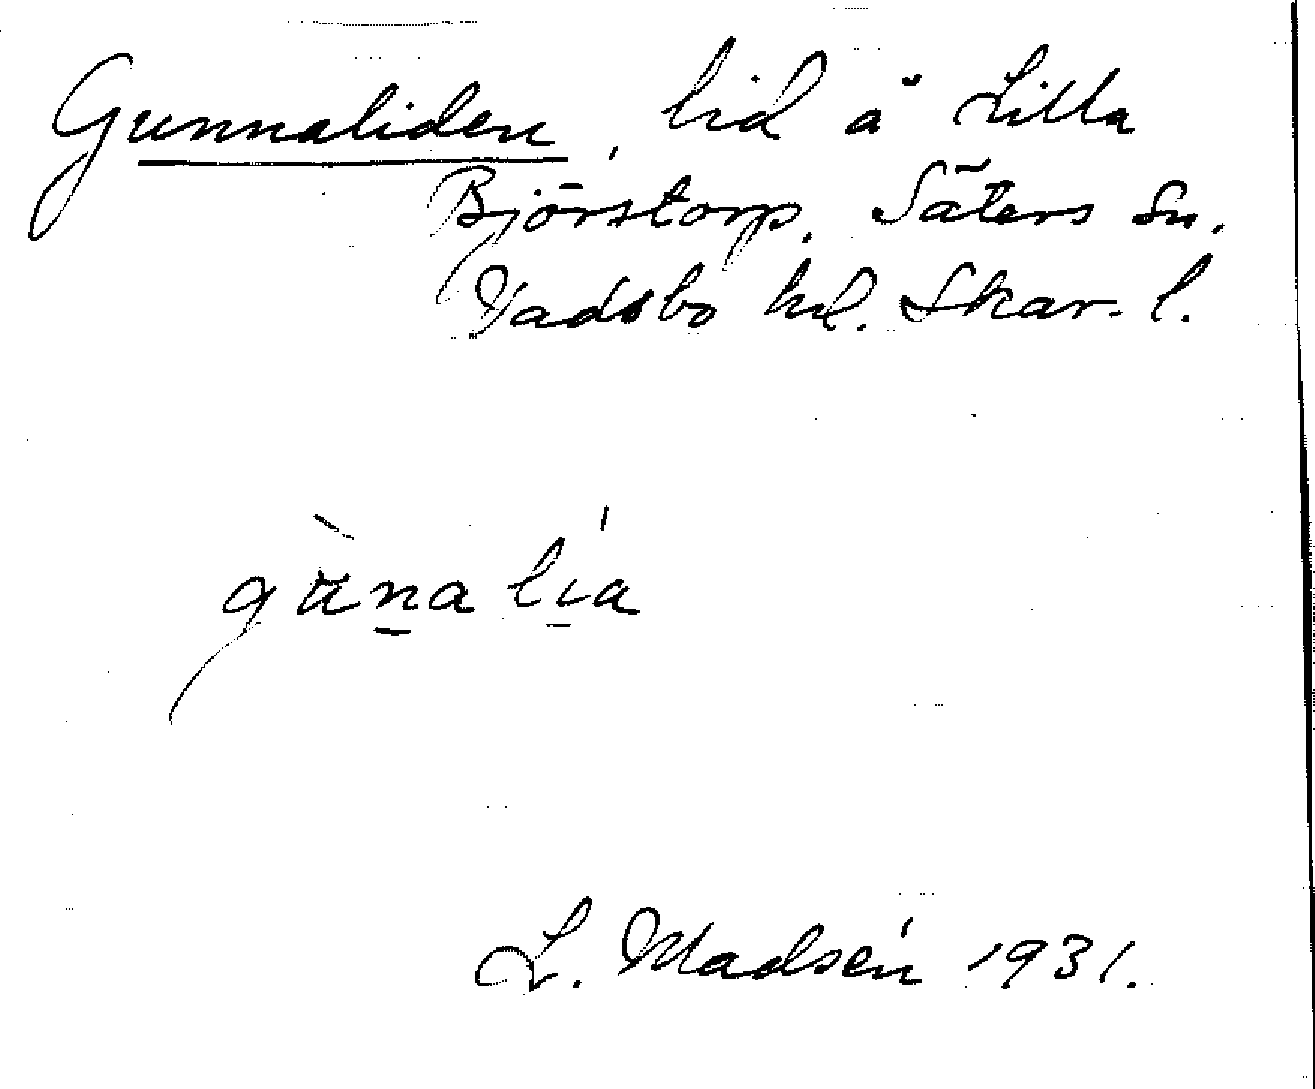 Gunnaliden, lid å Lilla
Björstorp, Säters sn.
Vadsbo hd. Skar. l.
gu̇̀na lía
L. Madsén 1931.